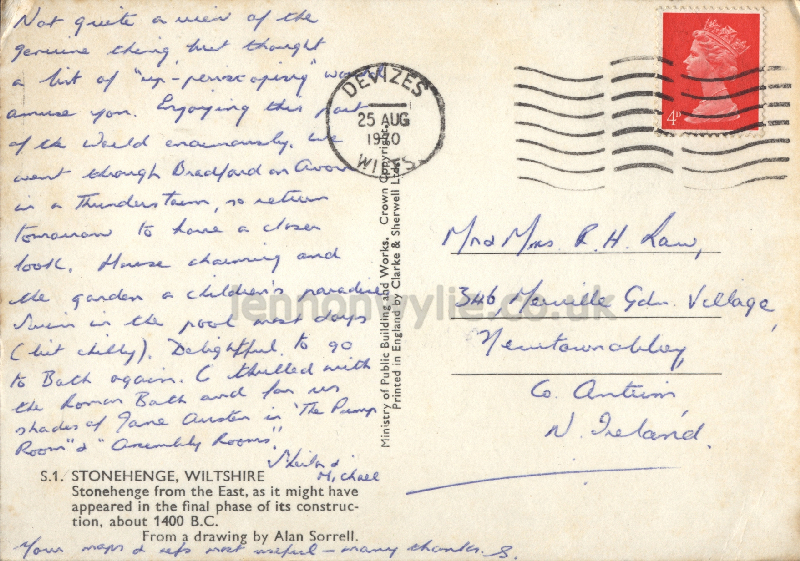 Not quite a view of the
genuine thing, but thought
a bit of "up-periscoping" would
amuse you. Enjoying this part
of the world enormously. We
went through Bradford on Avon
in a thunderstorm, so return
tomorrow to have a closer
look. House charming and
the garden a children's paradise
Swim in the pool most days
(bit chilly). Delightful to go
to Bath again. C thrilled with
the Roman Bath and for us
shades of Jane Austen in "The Pump
Room" & "Assembly Rooms".
Sheila &
Michael
S.1. STONEHENGE, WILTSHIRE
Stonehenge from the East, as it might have
appeared in the final phase of its construc-
tion, about 1400 B.C.
From a drawing by Alan Sorrell.
Your maps & refs most useful – many thanks. S.
Ministry of Public Building and Works. Crown Copyright.
Printed in England by Clarke & Sherwell Ltd.
DEVIZES
25 AUG
1970
WILTS.
4D
Mr & Mrs R. H. Law,
346, Merville Gdn. Village,
Newtownabbey,
Co. Antrim
N. Ireland.
lennonwylie.co.uk